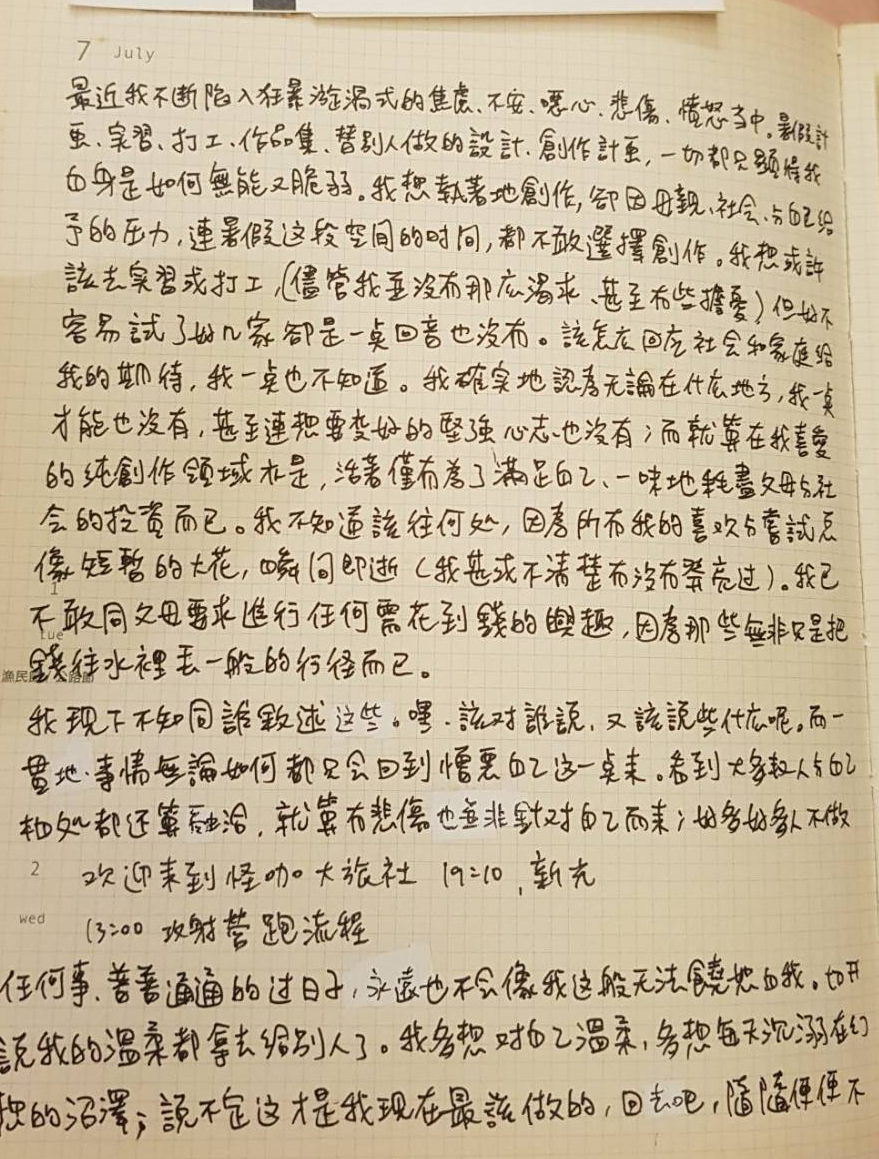 7 July
最近我不断陷入狂暴漩渦式的焦慮、不安、噁心、悲傷、憤怒当中。暑假計
画、実習、打工、作品集、替別人做的設計、創作計画，一切都只顯得我
自身是如何無能又脆弱。我想執著地創作，卻因母親、社会、与自己給
予的压力，連暑假这段空间的时间，都不敢選擇創作。我想或許
該去実習或打工，(儘管我並没有那広渴求、甚至有些擔憂)但好不
容易試了好几家卻是一点回音也没有。該怎広回应社会和家庭給
我的期待，我一点也不知道。我確実地認為无論在什広地方，我一点
才能也没有，甚至連想要变好的堅強心志也没有；而就算在我喜愛
的純創作領域亦是，活著僅有為了滿足自己、一味地耗盡父母与社
会的投資而已。我不知道該往何处，因為所有我的喜欢与嘗試总
像短暫的火花，瞬间即逝（我甚或不清楚有没有発亮过）。我已
1
不敢向父母要求進行任何需花到錢的興趣，因為那些無非只是把
tue
錢往水裡丟一般的行径而已。
漁民
我現下不知向誰敘述这些。嘿、該对誰說，又該說些什広呢。而一
貫地、事情無論如何都只会回到憎惡自己这一点来。看到大多数人与自己
相处都还算融洽，就算有悲傷也並非針对自己而来；好多好多人不做
2 欢迎来到怪咖大旅社 19:10，新光
wed 13:00 放射营跑流程
任何事、普普通通的过日子，永遠也不会像我这般无法饒恕自我。切开
說我的溫柔都拿去給別人了。我多想对自己溫柔，多想每天沉溺在幻
想的沼澤；說不定这才是我現在最該做的，回去吧，隨隨便便不